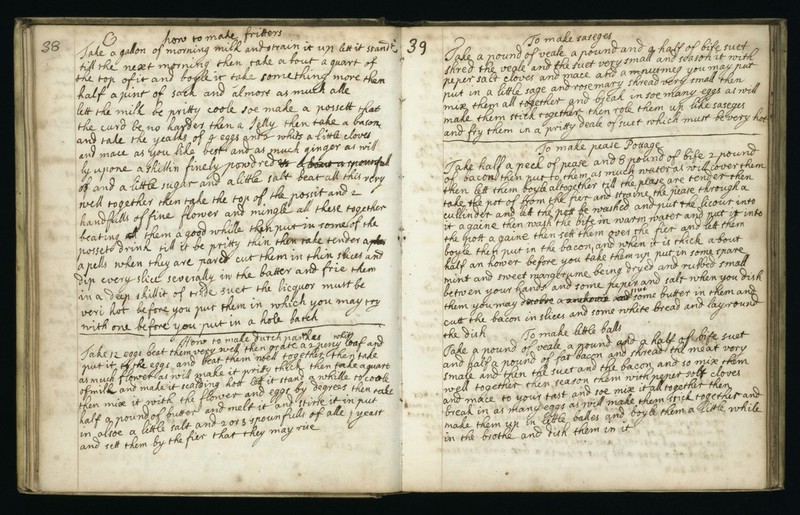 38
how to make fritters
Take a gallon of morning milk and strain it up lett it stand
till the next morning then take about a quart of
the top of it and boyle it take something more then
half a pint of sack and almost as much alle
lett the milk be pritty coole soe make a possett that
the curd be no harder then a Jelly then take a bason
and take the yealks of 9 eggs and 2 whits a little cloves
and mace as you like best and as much ginger as will
ly upone a shillin finely powdred
and a little sugar and a little salt beat all this very
well together then take the top of the possit and 2
handfulls of fine flower and mingle all these together
beating them a good while then put in some of the
possets drink till it be pritty thin then take tender
apells when they are pared cutt them in thin slices and
dip every slice severally in the batter and frie them
in a deep skillit of suet the licquor must be
veri hot before you put them in which you may try
with one before you put in a hole batch
How to make Dutch
Take 12 eggs beat them very well then grate a 2 peny loaf and
put it to the eggs and beat them well together then take
as much flower as will make it pritty thick then take a quart
of milk and make it scalding hott let it stand a whille to coole
then mix it with the flower and eggs by degrees then take
half a pound of butter and melt it and stirr it in put
in alsoe a little salt and 2 or 3 spounfulls of alle yeast
and sett them by the fier that they may rise
39
To make saseges
Take a pound of veale a pound and a half of bife suet
shred the veale and the suet very small and season it with
peper salt cloves and mace and a nutmeg you may put
in a little sage and rosemary shread very small then
mix them all together and break in soe many eggs as will
make them stick together then role them up like saseges
and fry them in a pritty deale of suet which must be very hot
To make pease Pottage
Take half a peck of pease and 8 pound of bife 2 pound
of bacon then put to them as much water as will cover them
then lett them boyle altogether till the pease are tender then
take the pot of from the fier and straine the pease through a
cullinder and lett the pot be washed and put the licour into
it againe then wash the bife in warm water and put it into
the pott againe then sett them over the fier and lett them
boyle then put in the bacon and when it is thick about
half an hower before you take them up put in some spare
mint and sweet margerume being dryed and rubbed small
betwen your hands and some peper and salt when you dish
them you may some butter in them and
cutt the bacon in slices and some white bread and lay round
the dish
To make little balls
Take a pound of veale a pound and a half of bife suet
and half a pound of fat bacon and shread the meat very
small and then the suet and the bacon and so mix them
well together then season them with peper salt cloves
and mace to your tast and soe mix it all together then
break in as many eggs as will make them stick together and
make them up in little balles and boyle them a little while
in the brothe and dish them in it